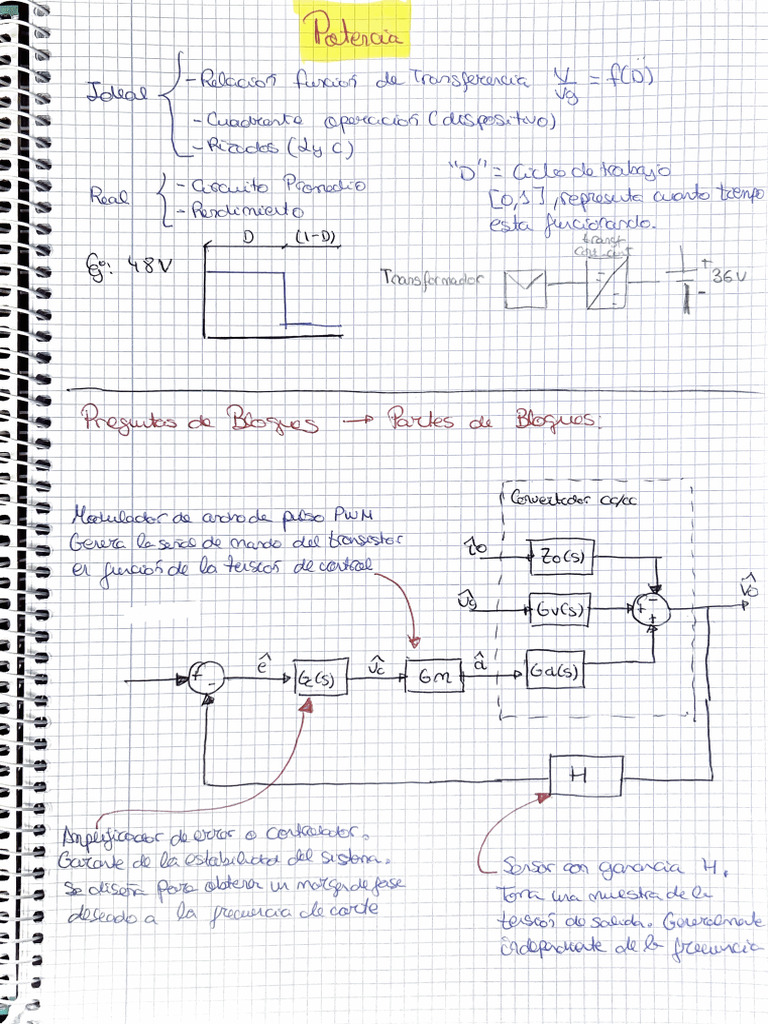 Potencia
Ideal
- Relación función de Transferencia V/Vg = f(D)
- Cuadrante operación (dispositivo)
- Rizados (L y C)
Real
- Circuito Promedio
- Rendimiento
"D" = Ciclo de trabajo
[0,1], representa cuanto tiempo
esta funcionando.
D (1-D)
Eg: 48V
Transformador
transf
+
36V
-
Preguntas de Bloques → Partes de Bloques:
Modulador de ancho de pulso PWM
Genera la señal de mando del transistor
en función de la tensión de control
Convertidor cc/cc
îo
Zo(s)
v̂g
Gv(s)
v̂o
+ - +
+ -
ê
Gc(s)
v̂c
Gm
d̂
Gd(s)
H
Amplificador de error o controlador.
Garante de la estabilidad del sistema.
se diseña para obtener un margen de fase
deseado a la frecuencia de corte
Sensor con ganancia H.
Toma una muestra de la
tensión de salida. Generalmente
independiente de la frecuencia